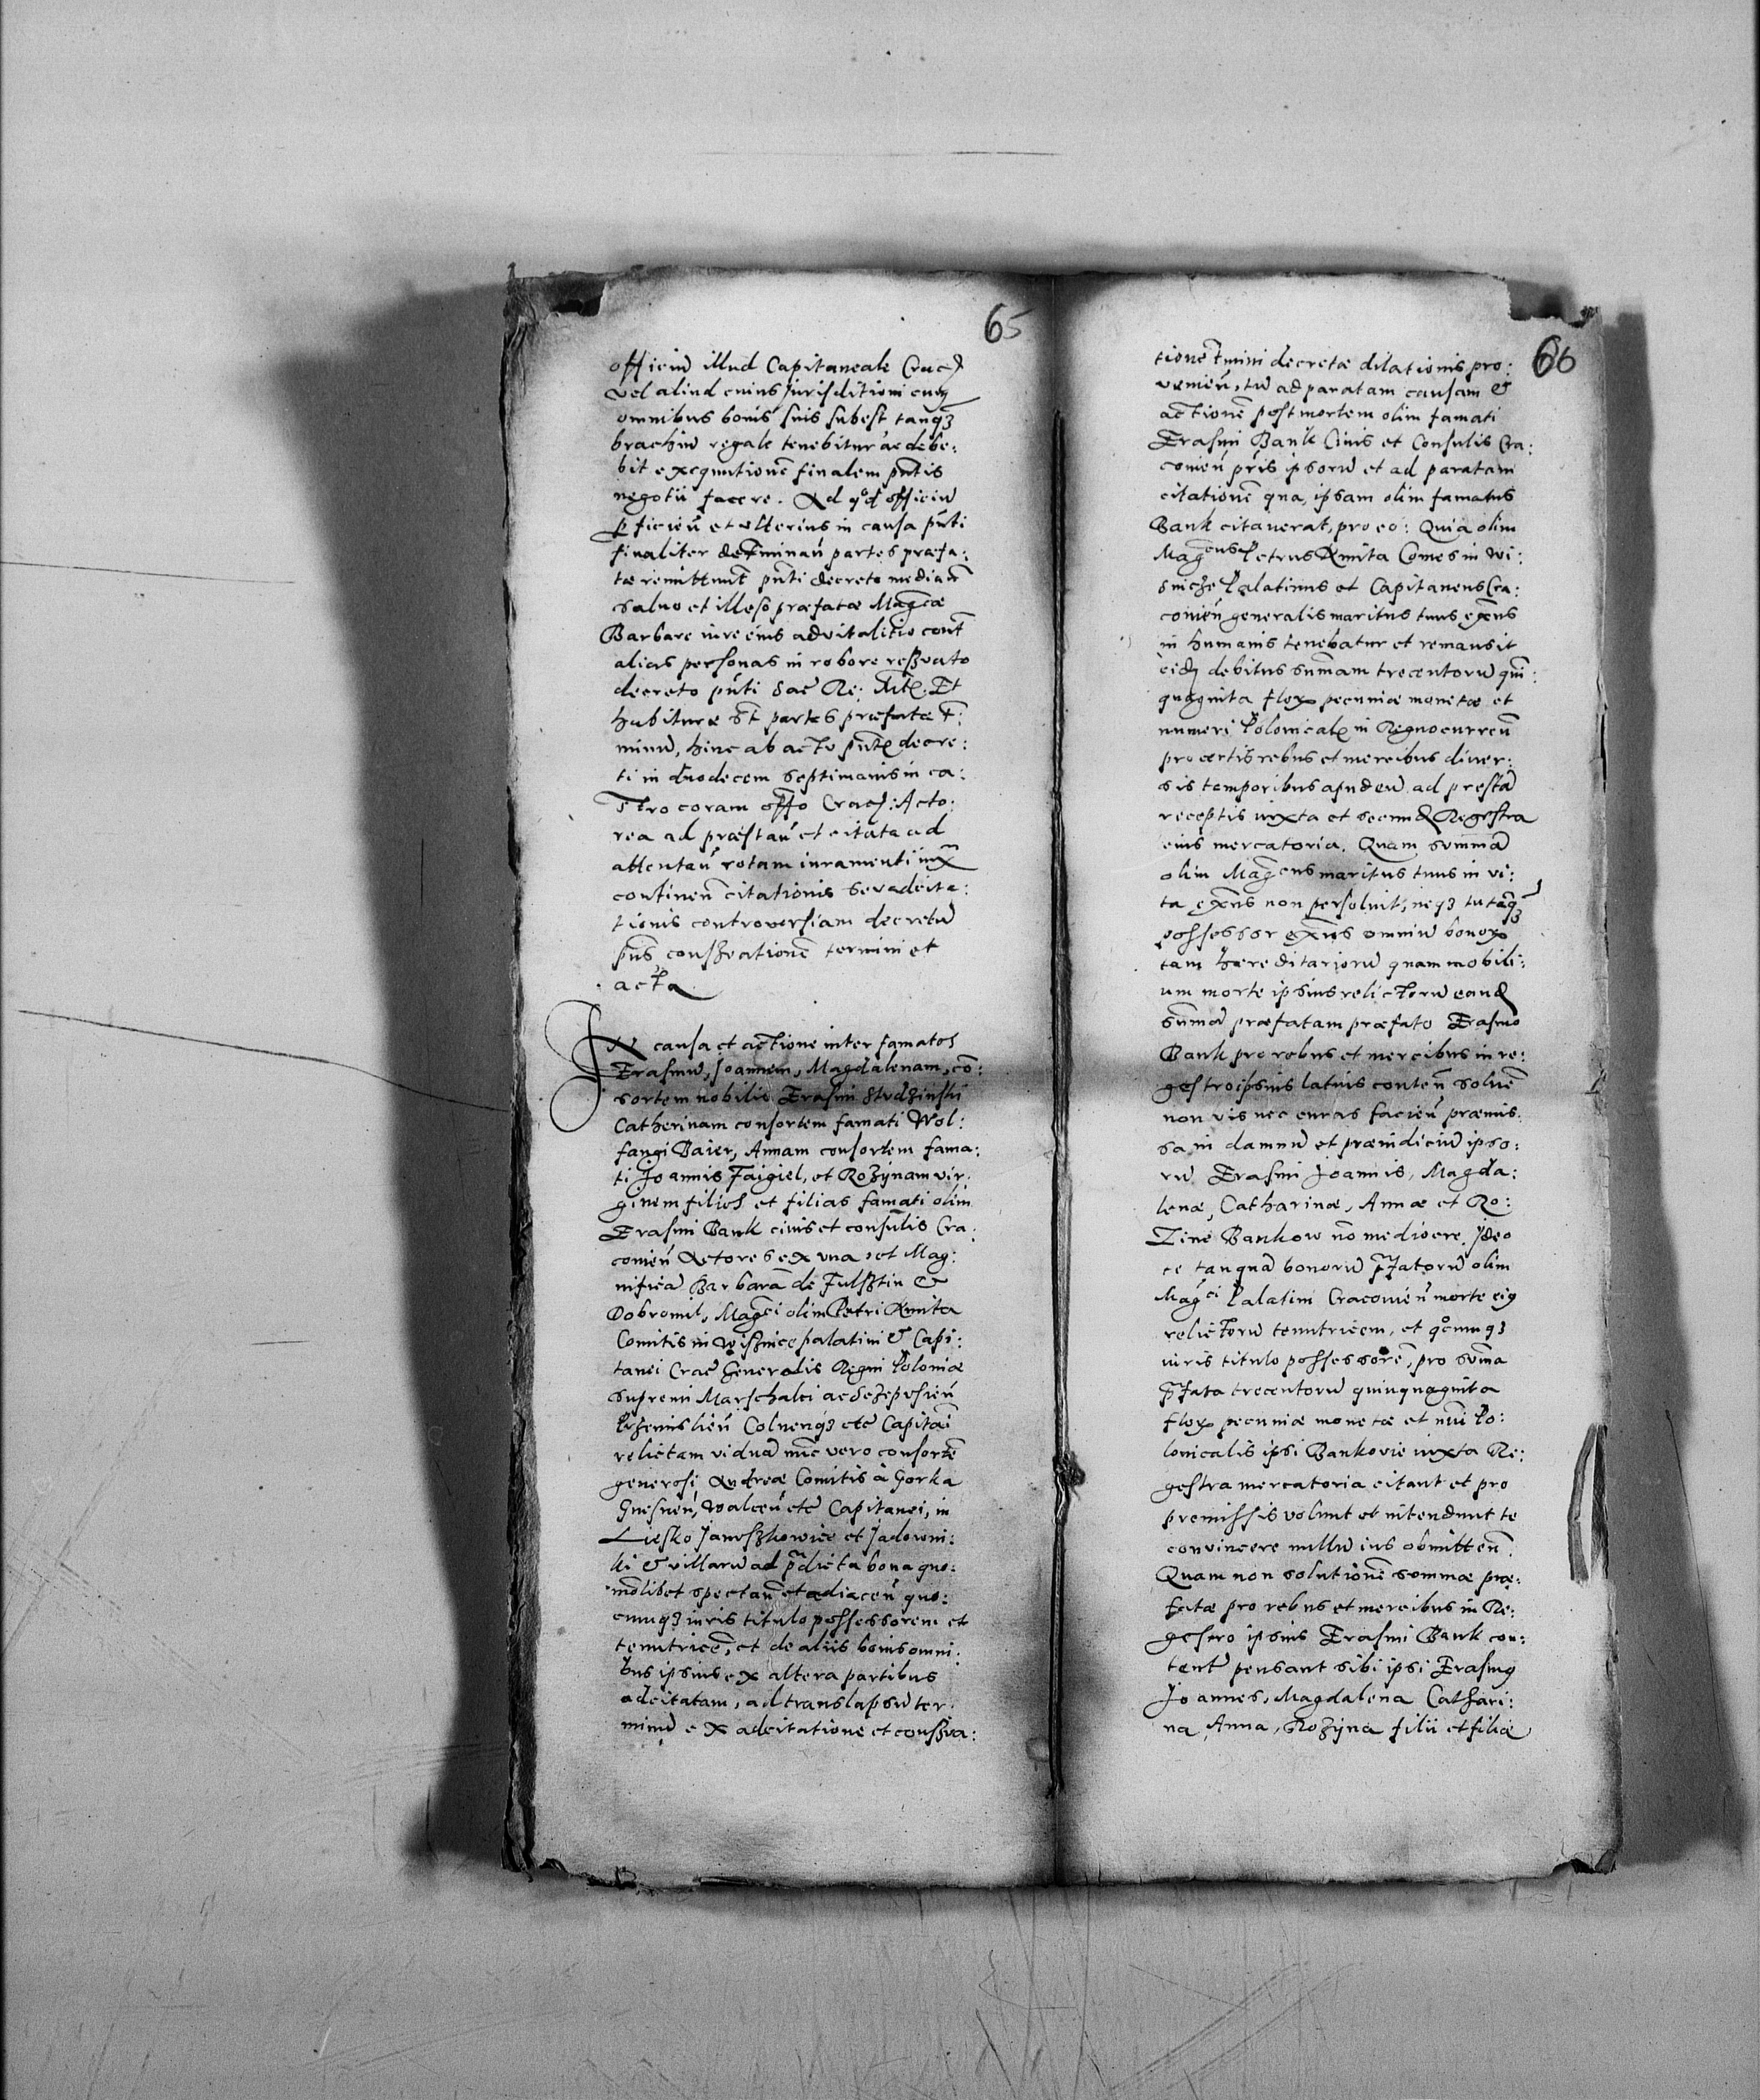 65
officiũ illud Capitaneale Crac̃
vel aliud cuius jurisditioni cuȝ
omnibus bonis suis subest tanqȝ
brachiũ regale tenebitur ac debe:
bit exequutionẽ finalem pñtis
negotii facere. Ad qd officiũ
ꝑficieñ et ulterius in causa pñti
finaliter determinañ partes præfa:
tæ remittunt pñti decreto mediañ
salvo et illeso præfatæ Magcæ
Barbare iure eius advitalitio cont̃
alias personas in robore resʒvato
decreto pñti Sac̃ Re: Mt̃. Et
habituræ st̃ partes præfatæ t̃:
minũ, hinc ab actu pñtȩ decre:
ti in duodecem septimanis in ca:
stro coram offo Crac̃: Acto:
rea ad præstañ et citata ad
attentañ rotam iuramenti iux̃
contineñ citationis seu adcita:
tionis controversiam decretũ
pñs consʒvationẽ termini et
acta
IN causa et actione inter famatos
Erasmũ, Joannem, Magdalenam, cõ:
sortem nobilis Erasmi Strdzinski
Catherinam consortem famati Wol:
fangi Baier, Annam consortem fama:
ti Joannis Faigiel, et Rozynam vir:
ginem filios et filias famati olim
Erasmi Bank civis et consulis Cra:
covieñ Actores ex una, et Mag:
nificã Barbarã de Fulsztin &
Dobromil, Magci olim Petri Kmita
Comitis in Wisznice palatini & Capi:
tanei Crac̃ Generalis Regni Poloniæ
supremi Marschalci ac Sczepusieñ
Przemislieñ Colneñqȝ etc̃ Capitãi
relictam viduã nũc vero consortẽ
generosi Andreæ Comitis à Gorka
Gnesneñ, Walceñ etc̃ Capitanei, in
Liesko Janvszkowice et Jadowni:
ki & villarũ ad p̃dicta bona quo:
mõlibet spectañ et adiaceñ quo:
cunqȝ iuris titulo possessorem et
tenutricẽ, et de aliis bonis omni:
bus ipsius ex altera partibus
adcitatam, ad translapsũ ter:
minũ ex adcitatione et consʒva:
66
tionẽ t̃mini decretæ dilationis pro:
venieñ, tũ ad paratam causam &
actionẽ post mortem olim famati
Erasmi Bank Civis et Consulis Cra:
covieñ pr̃is ipsorũ et ad paratam
citationẽ qua, ipsam olim famatus
Bank citaverat, pro eo: Quia olim
Magcus Petrus Kmita Comes in Wi:
snicze Palatinus et Capitaneus Cra:
covieñ generalis maritus tuus exñs
in humanis tenebatur et remansit
eidȝ debitus sum̃am trecentorũ qui:
quaginta floꝝ pecuniæ monetæ et
numeri Polonicalȩ in Regno curreñ
pro certis rebus et mercibus diver:
sis temporibus apud eũ ad præstã
receptis iuxta et secund̃ Regestra
eius mercatoria. Quam summã
olim Magcus maritus tuus in vi:
ta exñs non persolvit, neqȝ tu tãqȝ
possessor exñs omniũ bonoꝝ
tam hæreditariorũ quam mobili:
um morte ipsius relictorũ eand̃
sum̃ã præfatam præfato Erasmo
Bank pro rebus et mercibus in re:
gestro ipsius latius conteñ solvẽ
non vis nec curas facieñ præmis:
sa in damnũ et præiudiciũ ipso:
rũ Erasmi Joannis, Magda:
lenæ, Catharinæ, Annæ et Ro:
Zine Bankow nõ mediocre. Ideo
te tanquã bonorũ p̃fatorũ olim
Magci Palatini Cracovieñ morte eiȝ
relictorũ tenutricem, et qocunqȝ
iuris titulo possessorẽ, pro sum̃a
p̃fata trecentorũ quinquaginta
floꝝ pecuniæ monetæ et nũi Po:
lonicalis ipsi Bankovie iuxta Re:
gestra mercatoria citant et pro
premissis volunt et intendunt te
convincere nullũ ius obmitteñ.
Quam non solutionẽ sommæ præ:
fatæ pro rebus et mercibus in Re:
gestro ipsius Erasmi Bank con:
tent̃ pensant sibi ipsi Erasmȝ
Joannes, Magdalena Cathari:
na, Anna, Rozyna filii et filiæ